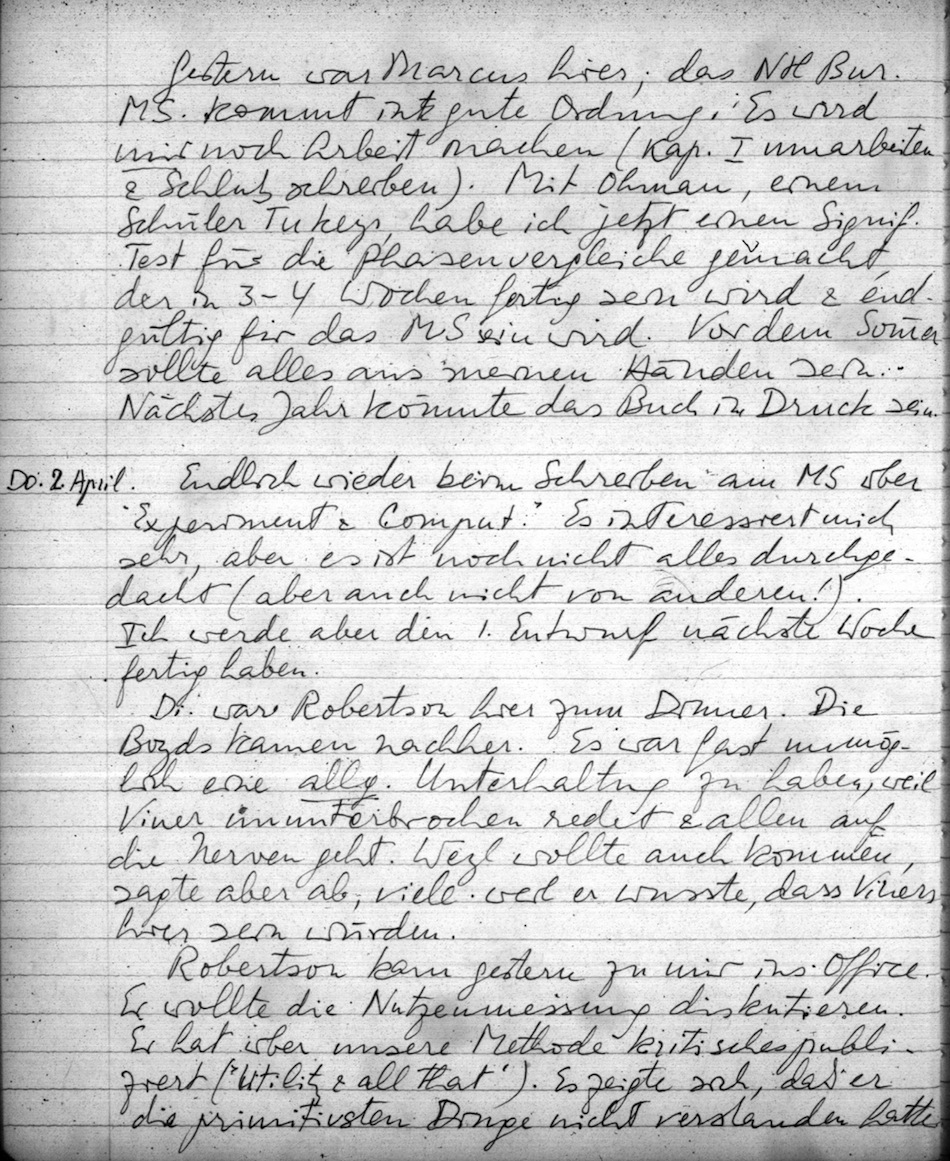 Gestern war Marcus hier; das NH Bur.
MS. kommt in gute Ordnung; Es wird
mir noch Arbeit machen (Kap. I umarbeiten
& Schluß schreiben). Mit Ohman, einem
Schüler Tukeys, habe ich jetzt einen Signif.
Test für die Phasenvergleiche gemacht,
der in 3–4 Wochen fertig sein wird & end-
gültig für das MS sein wird. Vor dem Somer
sollte alles aus meinen Händen sein.
Nächstes Jahr könnte das Buch in Druck sein.
Do. 2. April. Endlich wieder beim Schreiben am MS über
"Experiment & Comput." Es interessiert mich
sehr, aber es ist noch nicht alles durchge-
dacht (aber auch nicht von anderen!).
Ich werde aber den 1. Entwurf nächste Woche
fertig haben.
Di. war Robertson hier zum Dinner. Die
Boyds kamen nachher. Es war fast unmög-
lich eine allg. Unterhaltung zu haben, weil
Viner ununterbrochen redet & allen auf
die Nerven geht. Weyl wollte auch kommen,
sagte aber ab, viell. weil er wusste, dass Viners
hier sein würden.
Robertson kam gestern zu mir ins Office.
Er wollte die Nutzenmessung diskutieren.
Er hat über unsere Methode kritisches publi-
ziert ("Utility & all that"). Es zeigte sich, daß er
die primitivsten Dinge nicht verstanden hatte